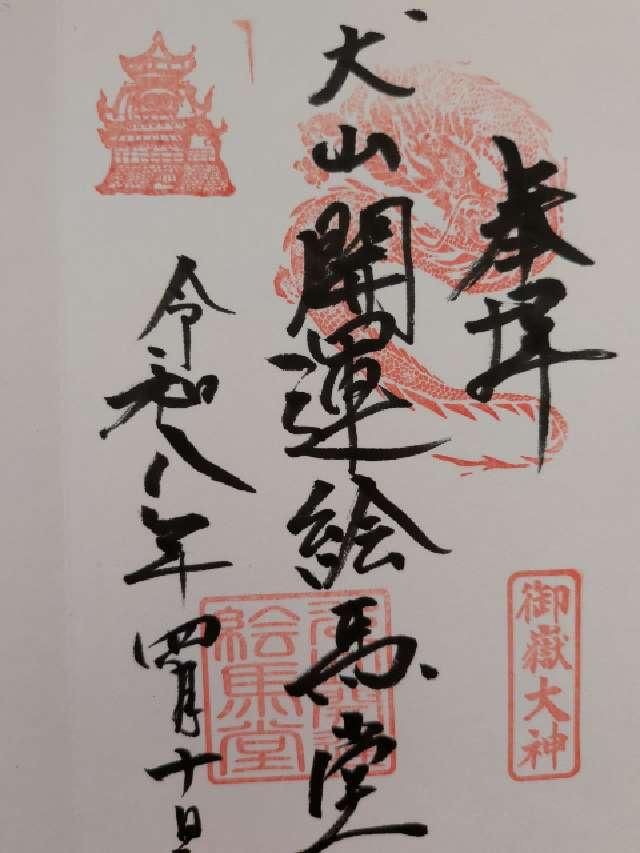 奉拝
御嶽大神
犬山開運絵馬堂
絵馬堂
令和八年四月十日